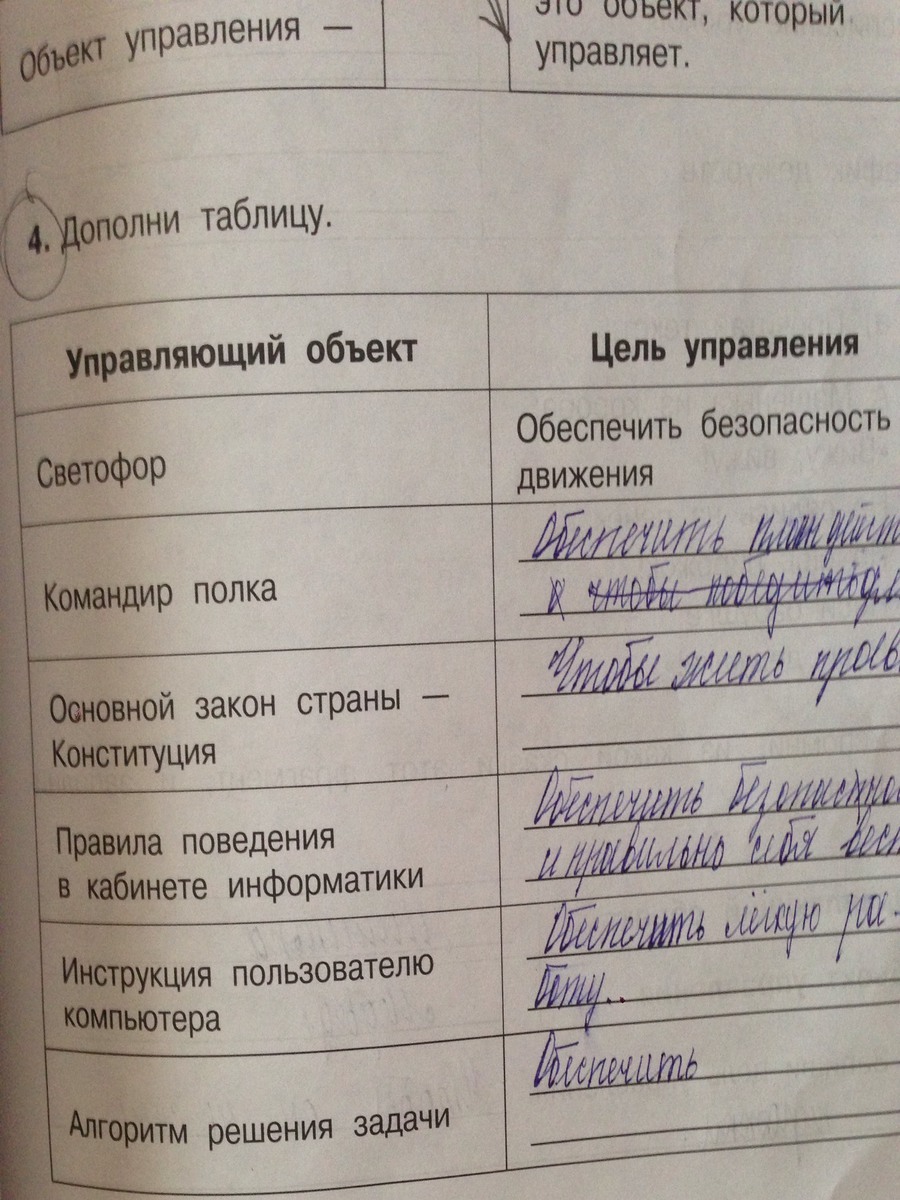 Объект управления —
это объект, который
управляет.
4. Дополни таблицу.
Управляющий объект
Цель управления
Светофор
Обеспечить безопасность
движения
Командир полка
Обеспечить план
чтобы победить
Основной закон страны —
Конституция
Чтобы жить
Правила поведения
в кабинете информатики
Обеспечить
и правильно себя
Инструкция пользователю
компьютера
Обеспечить лёгкую ра-
боту..
Алгоритм решения задачи
Обеспечить